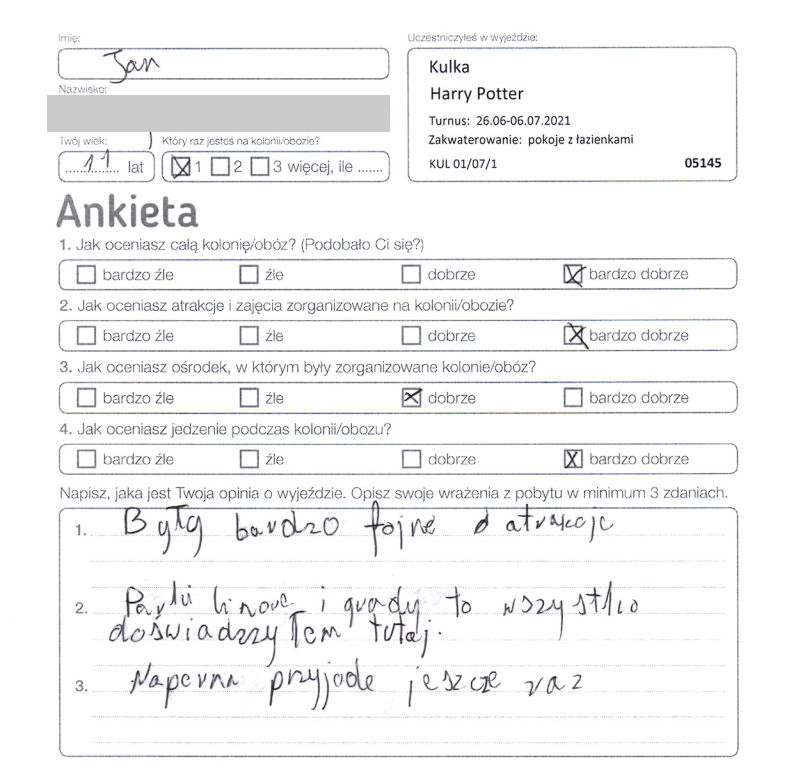 Imię:
Jan
Uczestniczyłeś w wyjeździe:
Kulka
Harry Potter
Turnus: 26.06-06.07.2021
Zakwaterowanie: pokoje z łazienkami
KUL 01/07/1 05145
Nazwisko:
Twój wiek: Który raz jesteś na kolonii/obozie?
11 lat 1 2 3 więcej, ile .......
Ankieta
1. Jak oceniasz całą kolonię/obóz? (Podobało Ci się?)
bardzo źle źle dobrze bardzo dobrze
2. Jak oceniasz atrakcje i zajęcia zorganizowane na kolonii/obozie?
bardzo źle źle dobrze bardzo dobrze
3. Jak oceniasz ośrodek, w którym były zorganizowane kolonie/obóz?
bardzo źle źle dobrze bardzo dobrze
4. Jak oceniasz jedzenie podczas kolonii/obozu?
bardzo źle źle dobrze bardzo dobrze
Napisz, jaka jest Twoja opinia o wyjeździe. Opisz swoje wrażenia z pobytu w minimum 3 zdaniach.
1. Były bardzo fojne atrakcje
2. Parki linowe i quady to wszystko
doświadczyłem tutaj.
3. Napewna przyjode jeszcze raz